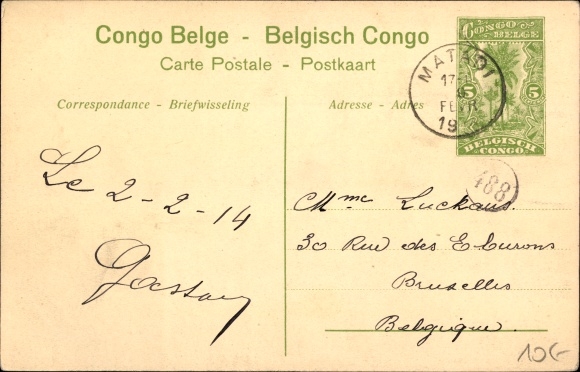 Congo Belge - Belgisch Congo
Carte Postale - Postkaart
Correspondance - Briefwisseling
Adresse - Adres
CONGO BELGE
5 5
BELGISCH CONGO
MATADI
FEVR
19
488
Le 2-2-14
Gaston
Mme Luckaus.
30 Rue des Eburons
Bruxelles
Belgique.
10€